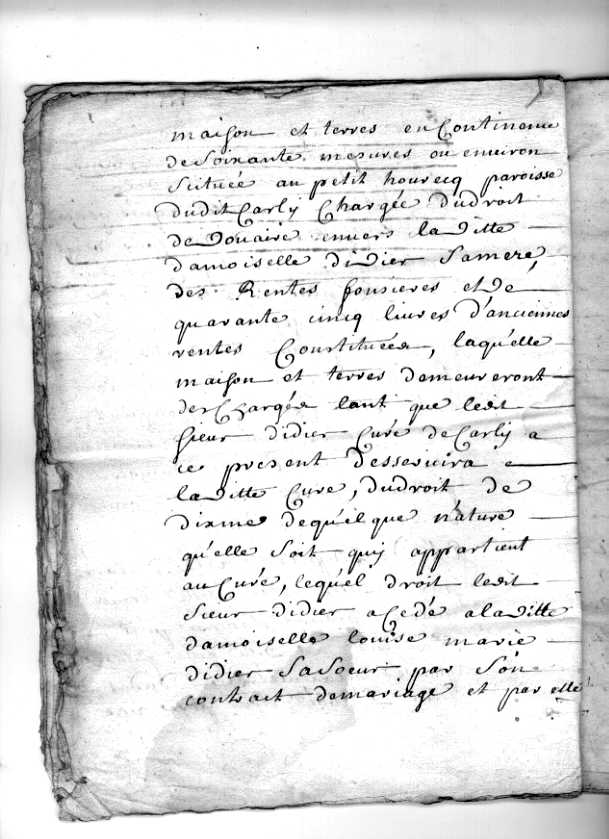 maison et terres en Continence
de Soixante mesures ou environ
Scituée au petit hourecq paroisse
dudit Carly Chargée dudroit
de Douaire envers laditte
damoiselle didier Samere,
des Rentes fonsieres et de
quarante cinq livres d'anciennes
rentes Constituées, laqu'elle
maison et terres demeureront
deschargés tant que ledit
Sieur didier Curé de Carly a
ce present desservira
laditte Cure, dudroit de
dixme de qu'elque nature
qu'elle Soit quy appartient
au Curé, lequ'el droit ledit
Sieur didier a Cedé a laditte
damoiselle louise marie
didier Sa Soeur par Son
contrait de mariage et par elle